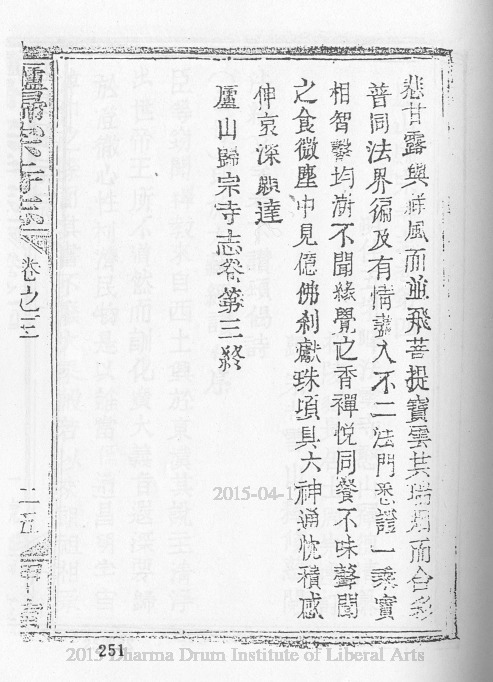 悲甘露與祥風而並飛菩提寶雲共瑞烟而合彩
普同法界徧及有情盡入不二法門悉證一乘實
相智鑿均澍不聞緣覺之香禪悅同餐不味聲聞
之食微塵中見億佛剎獻珠頃具六神通忱積感
伸哀深願達
廬山歸宗寺志卷第三終
廬山歸宗寺志 卷之三
251
2015-04-1
2015 Dharma Drum Institute of Liberal Arts